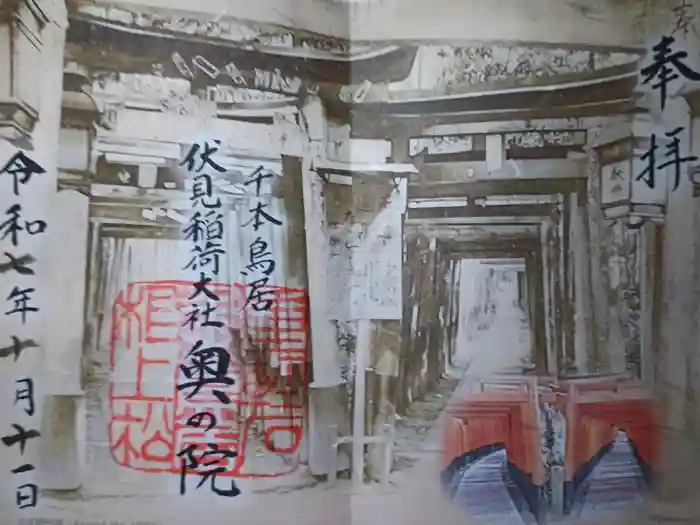 奉拝
千本鳥居
伏見稲荷大社
奥の院
令和七年十月十一日